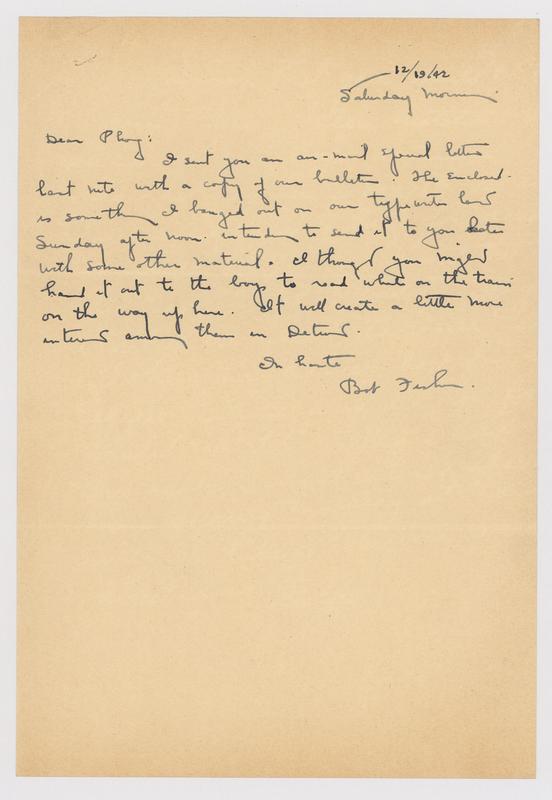 12/19/42
Saturday Morning
Dear Phog:
I sent you an air-mail special letter
last nite with a copy of our bulletin. The enclosed
is something I banged out on our typewriter last
Sunday after noon intending to send it to you later
with some other material. I thought you might
hand it out to the boys to read while on the train
on the way up here. It will create a little more
interest among them in Detroit.
In haste
Bob